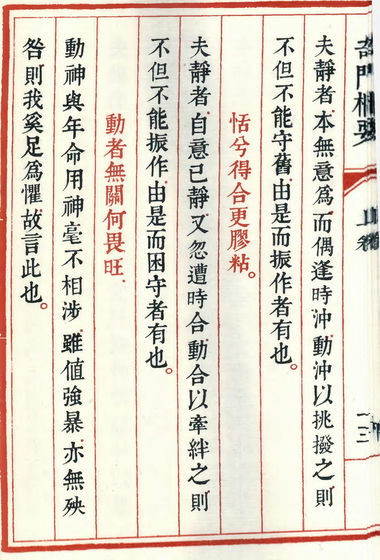 夫靜者本無意爲而偶逢時沖動沖以挑撥之則
不但不能守舊由是而振作者有也。
恬兮得合更膠粘。
夫靜者自意已靜又忽遭時合動合以牽絆之則
不但不能振作由是而困守者有也。
動者無關何畏旺
動神與年命用神毫不相涉雖值強暴亦無殃
咎則我奚足爲懼故言此也。